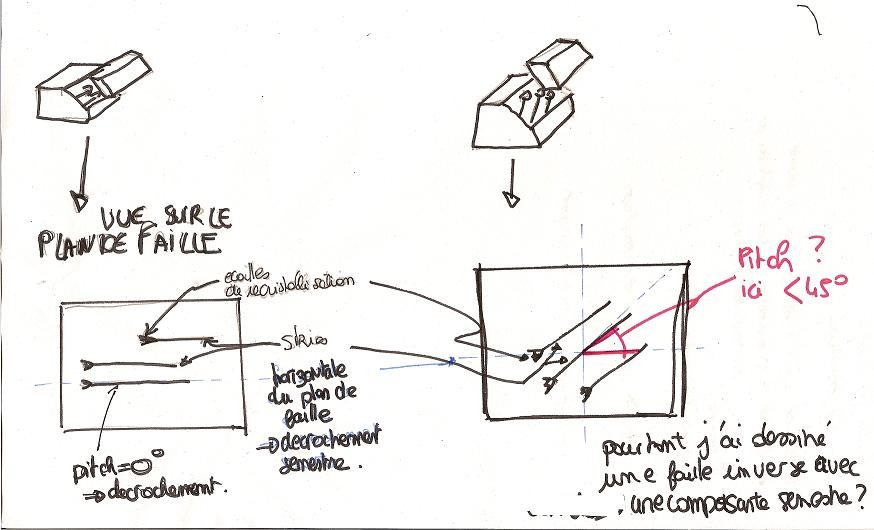 VUE SUR LE
PLAN DE FAILLE
ecailles
de recristallisation
stries
horizontale
du plan de
faille
⇒ decrochement
senestre.
pitch = 0°
⇒ decrochement.
Pitch ?
ici < 45°
pourtant j'ai dessiné
une faille inverse avec
une composante senestre ?